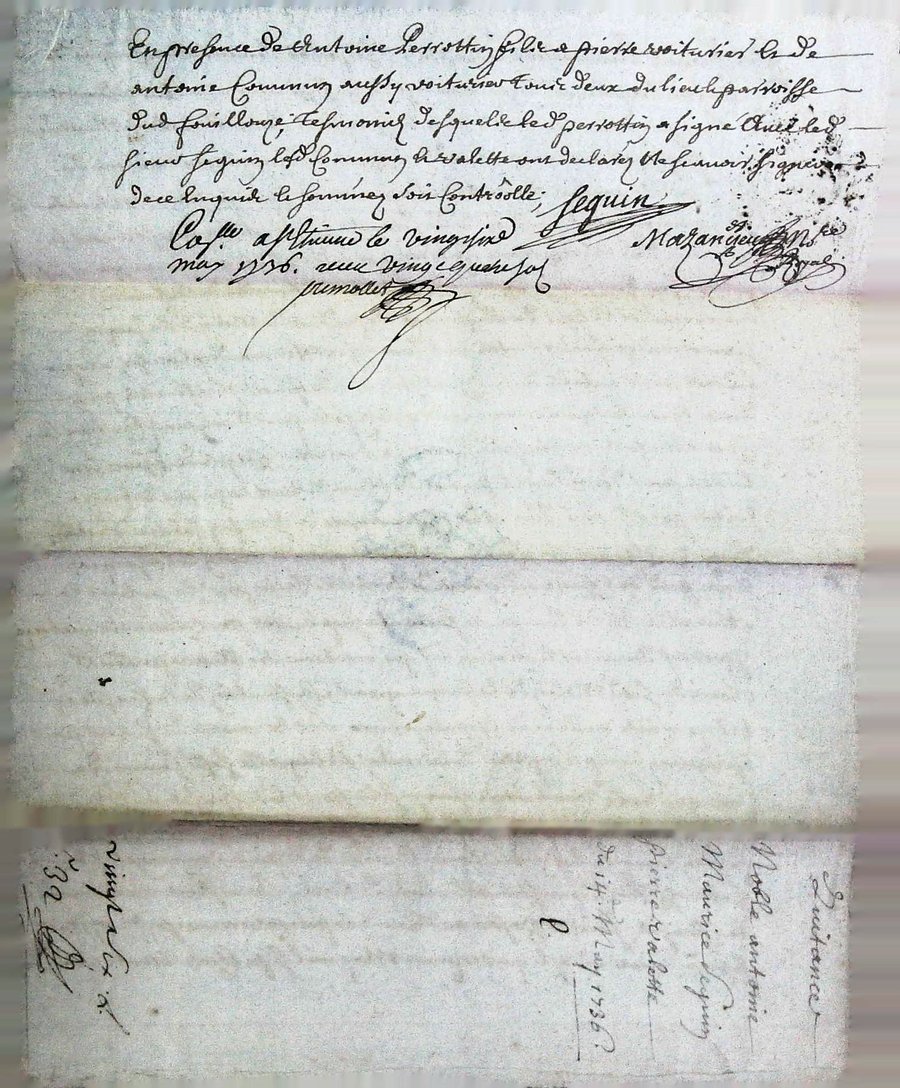 En presence de Antoine Perrottin fils a pierre voiturier et de
antoine Commun aussy voiturier tous deux du lieu et parroisse
dud fouilloux, tesmoins desquels led perrottin a signé avec led
sieur seguin, lesd Commun et valette ont declarez ne scavoir signer
de ce enquis et sommez soit Controollé; Seguin
a st Etienne le vingt six
may 1736. receu vingt quatre sol
Noble antoine
Maurice Seguin
pierre valette
du 14e May 1736.
Quitance